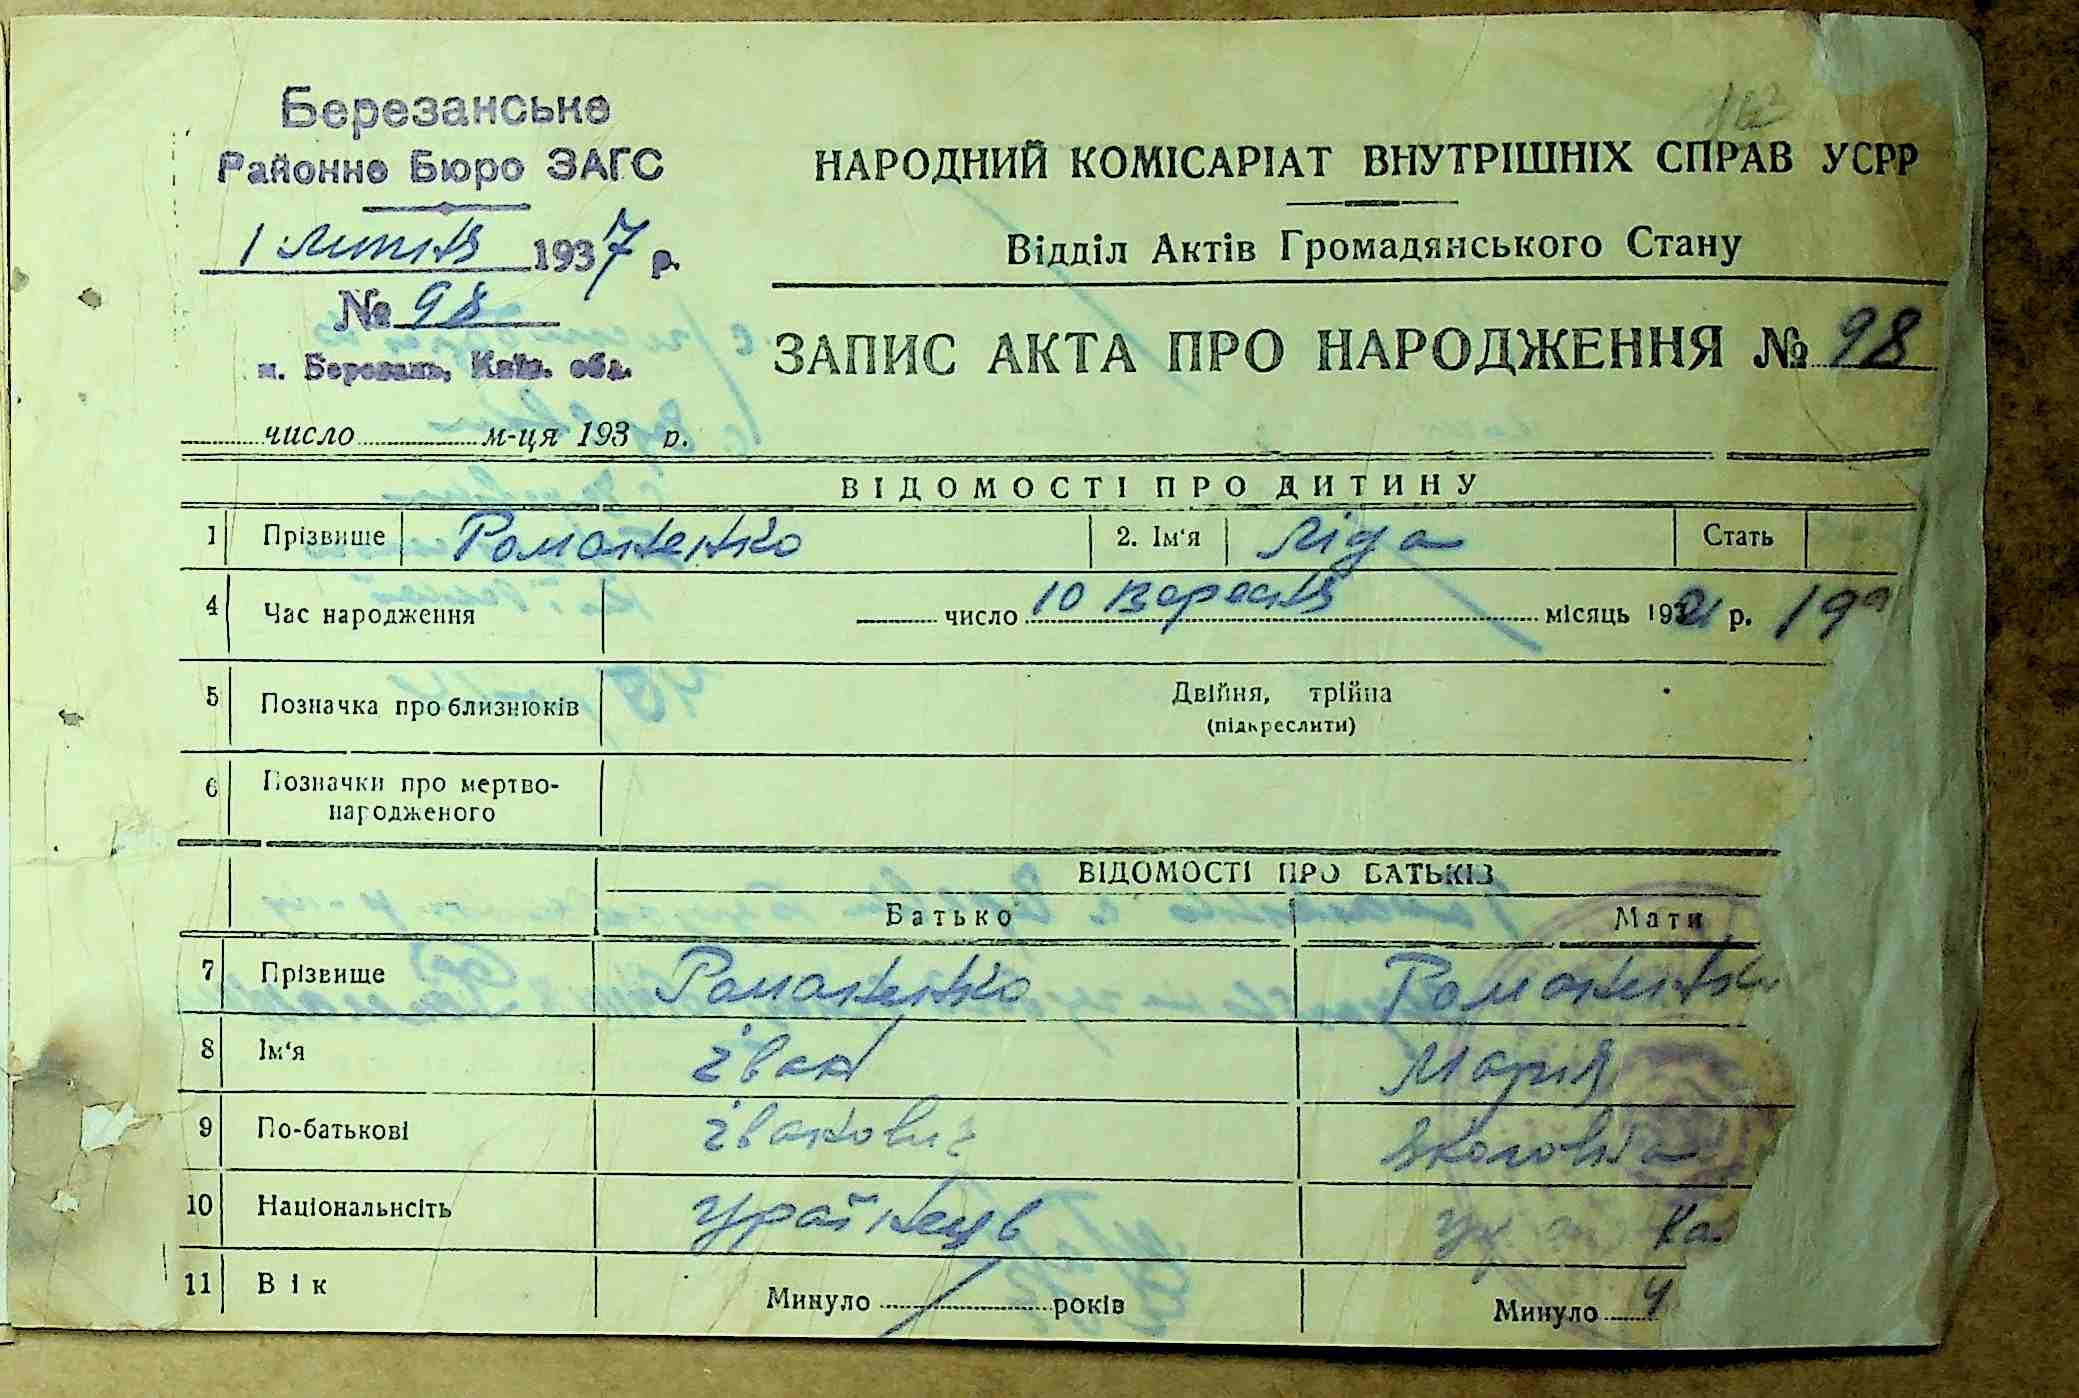 162
Березанське
Районне Бюро ЗАГС
1 лютня 1937 р.
№ 98
м. Березань, Київ. обл.
число м-ця 193 р.
НАРОДНИЙ КОМІСАРІАТ ВНУТРІШНІХ СПРАВ УСРР
Відділ Актів Громадянського Стану
ЗАПИС АКТА ПРО НАРОДЖЕННЯ № 98
ВІДОМОСТІ ПРО ДИТИНУ
1 Прізвище Романенко 2. Ім'я Ліда Стать
4 Час народження число 10 вересня місяць 1921 р.
5 Позначка про близнюків Двійня, трійна
(підкреслити)
6 Позначки про мертво-
народженого
ВІДОМОСТІ ПРО БАТЬКІВ
Батько Мати
7 Прізвище Романенко Романенко
8 Ім'я іван Марія
9 По-батькові іванович
10 Національність Україн
11 Вік Минуло років Минуло